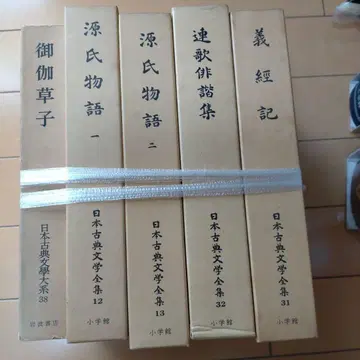 御伽草子
日本古典文學大系
38
岩波書店
源氏物語 一
日本古典文学全集
12
小学館
源氏物語 二
日本古典文学全集
13
小学館
連歌俳諧集
日本古典文学全集
32
小学館
義経記
日本古典文学全集
31
小学館